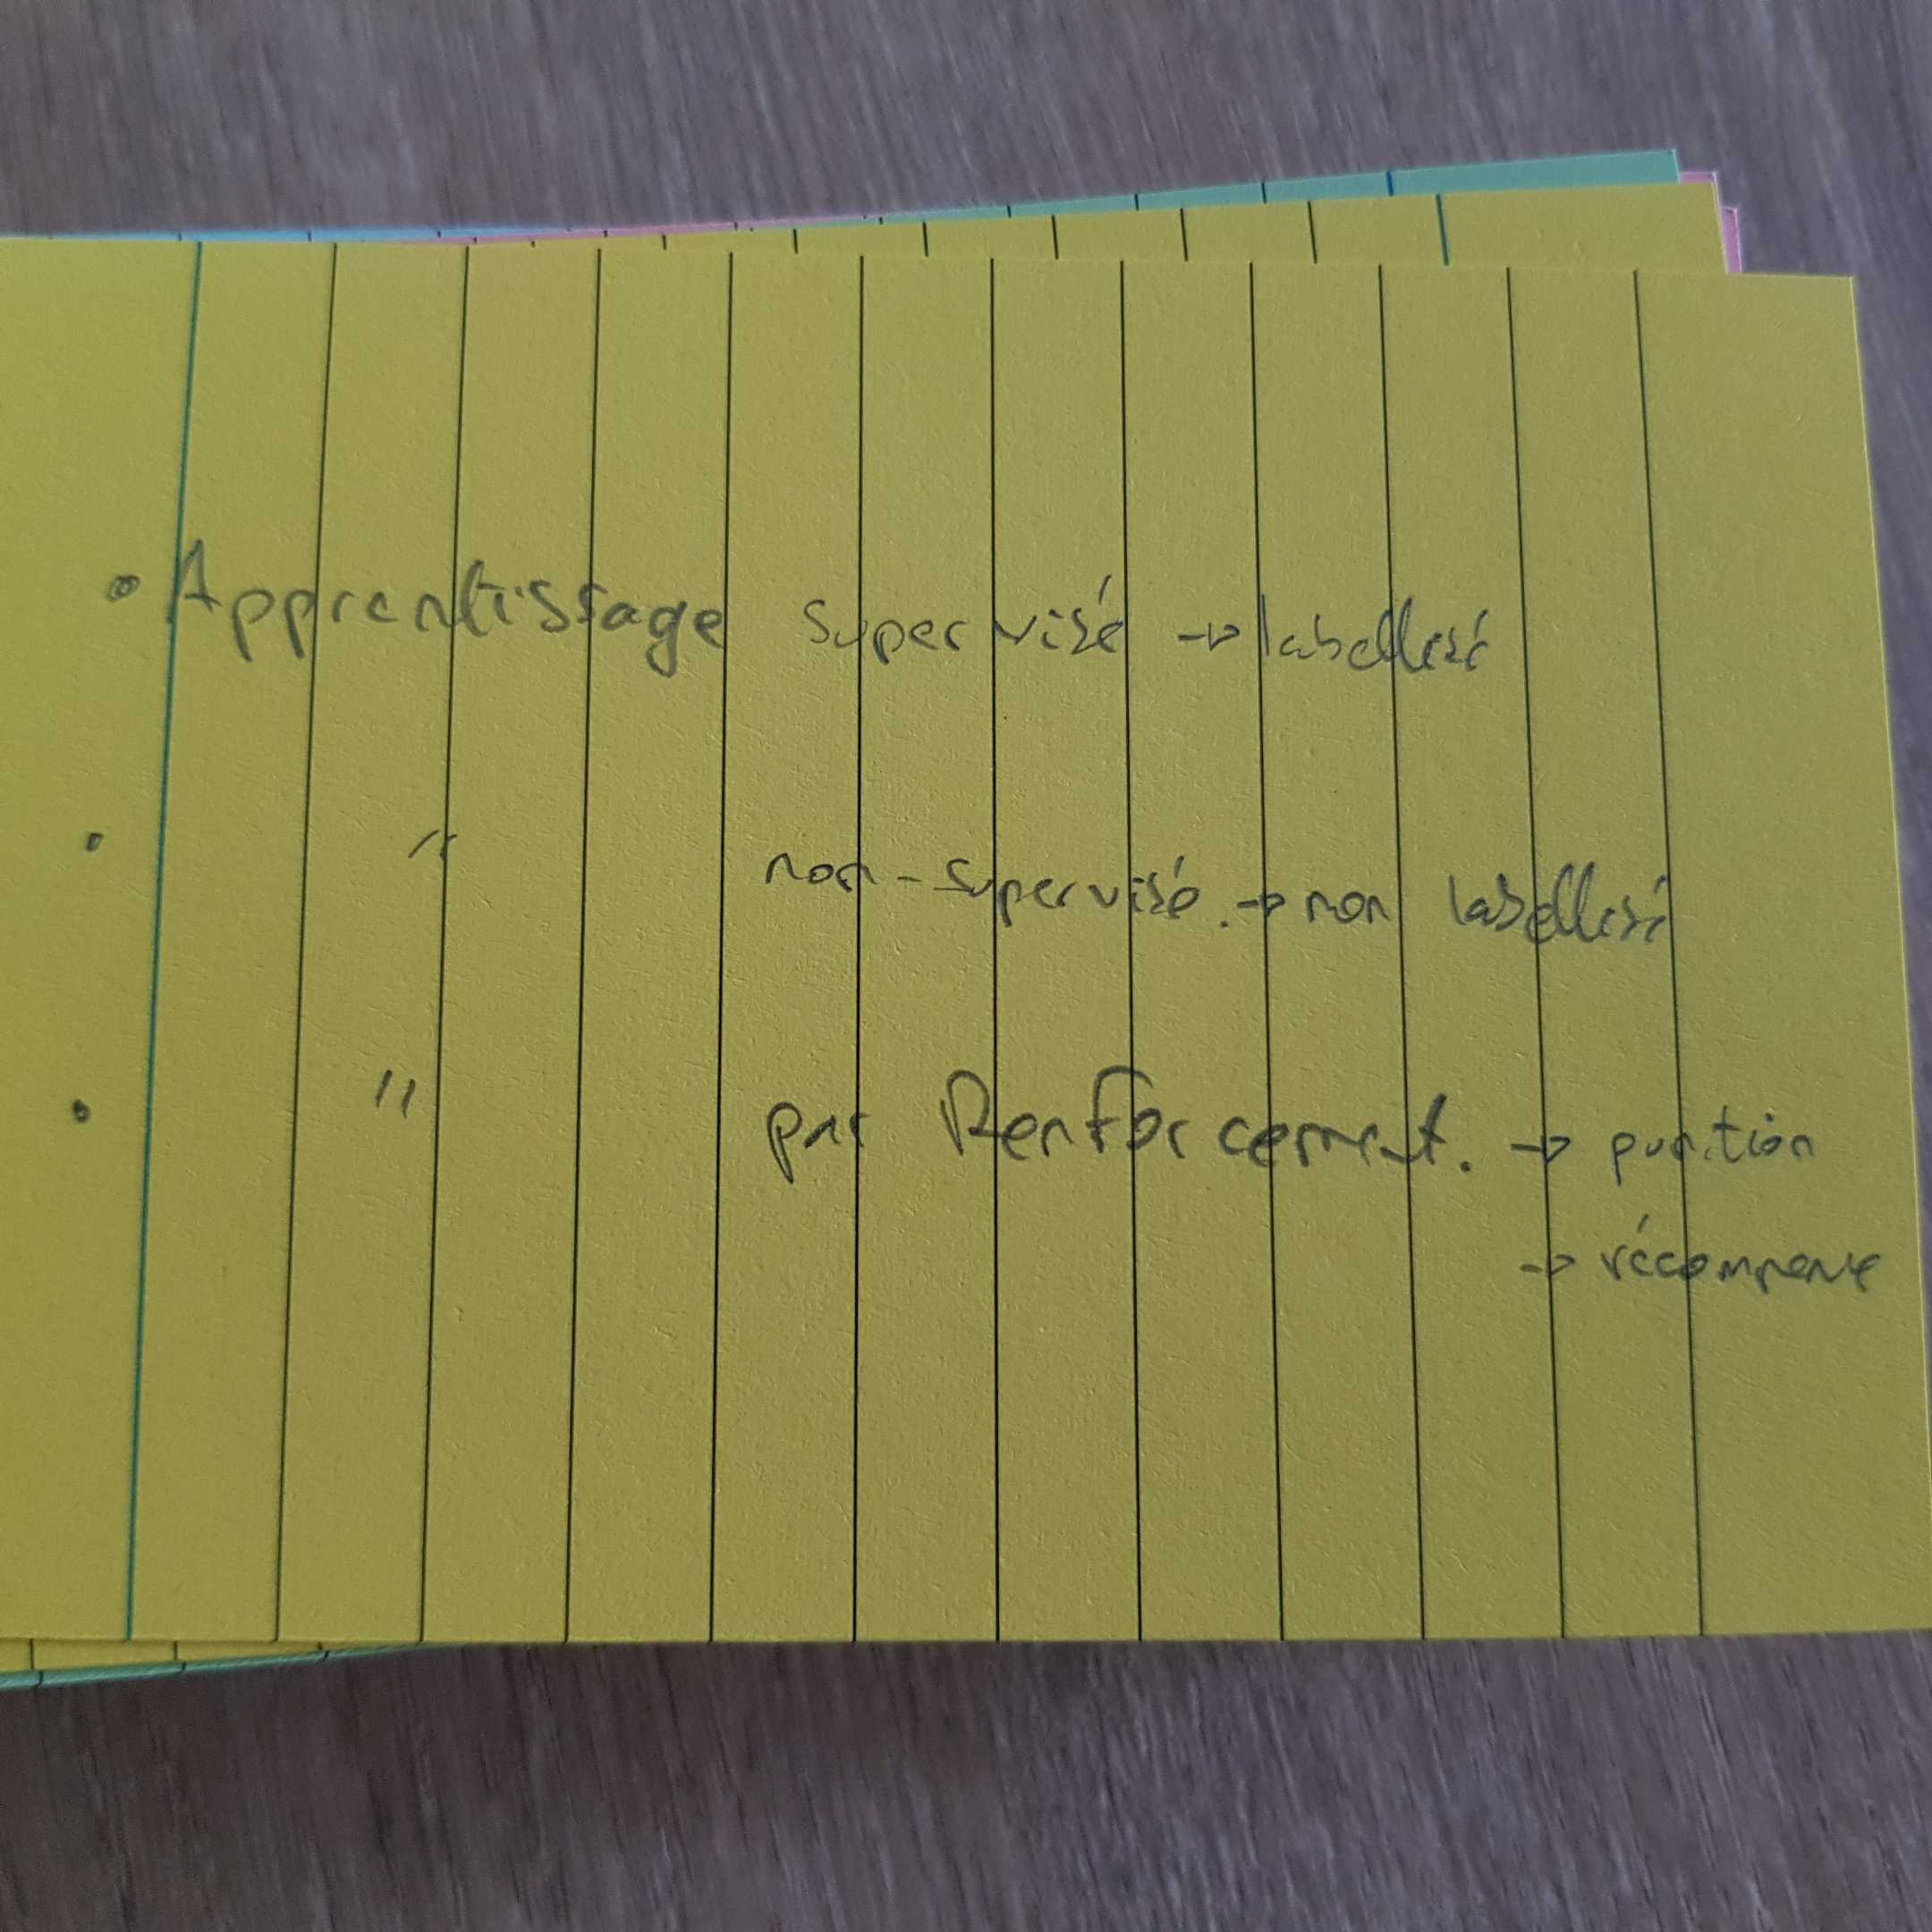 • Apprentissage supervisé → labellisé
• " non-supervisé. → non labellisé
• " par Renforcement. → punition
→ récompense